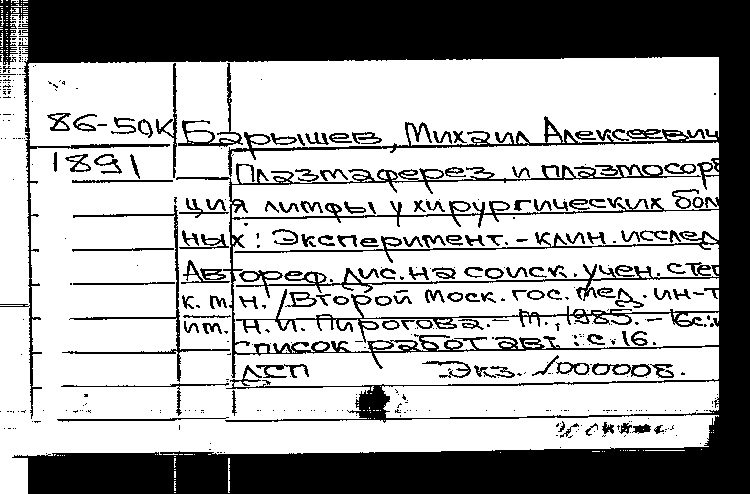 86-50К Барышев, Михаил Алексеевич
1891 Плазмаферез и плазмосорб
ция лимфы у хирургических бол
ных: Эксперимент.-клин. исслед
Автореф. дис. на соиск. учен. степ
к. м. н. /Второй моск. гос. мед. ин-т
им. Н. И. Пирогова.- М., 1985. - 16с.:
список работ авт.: с. 16.
ДСП Экз. 000008.